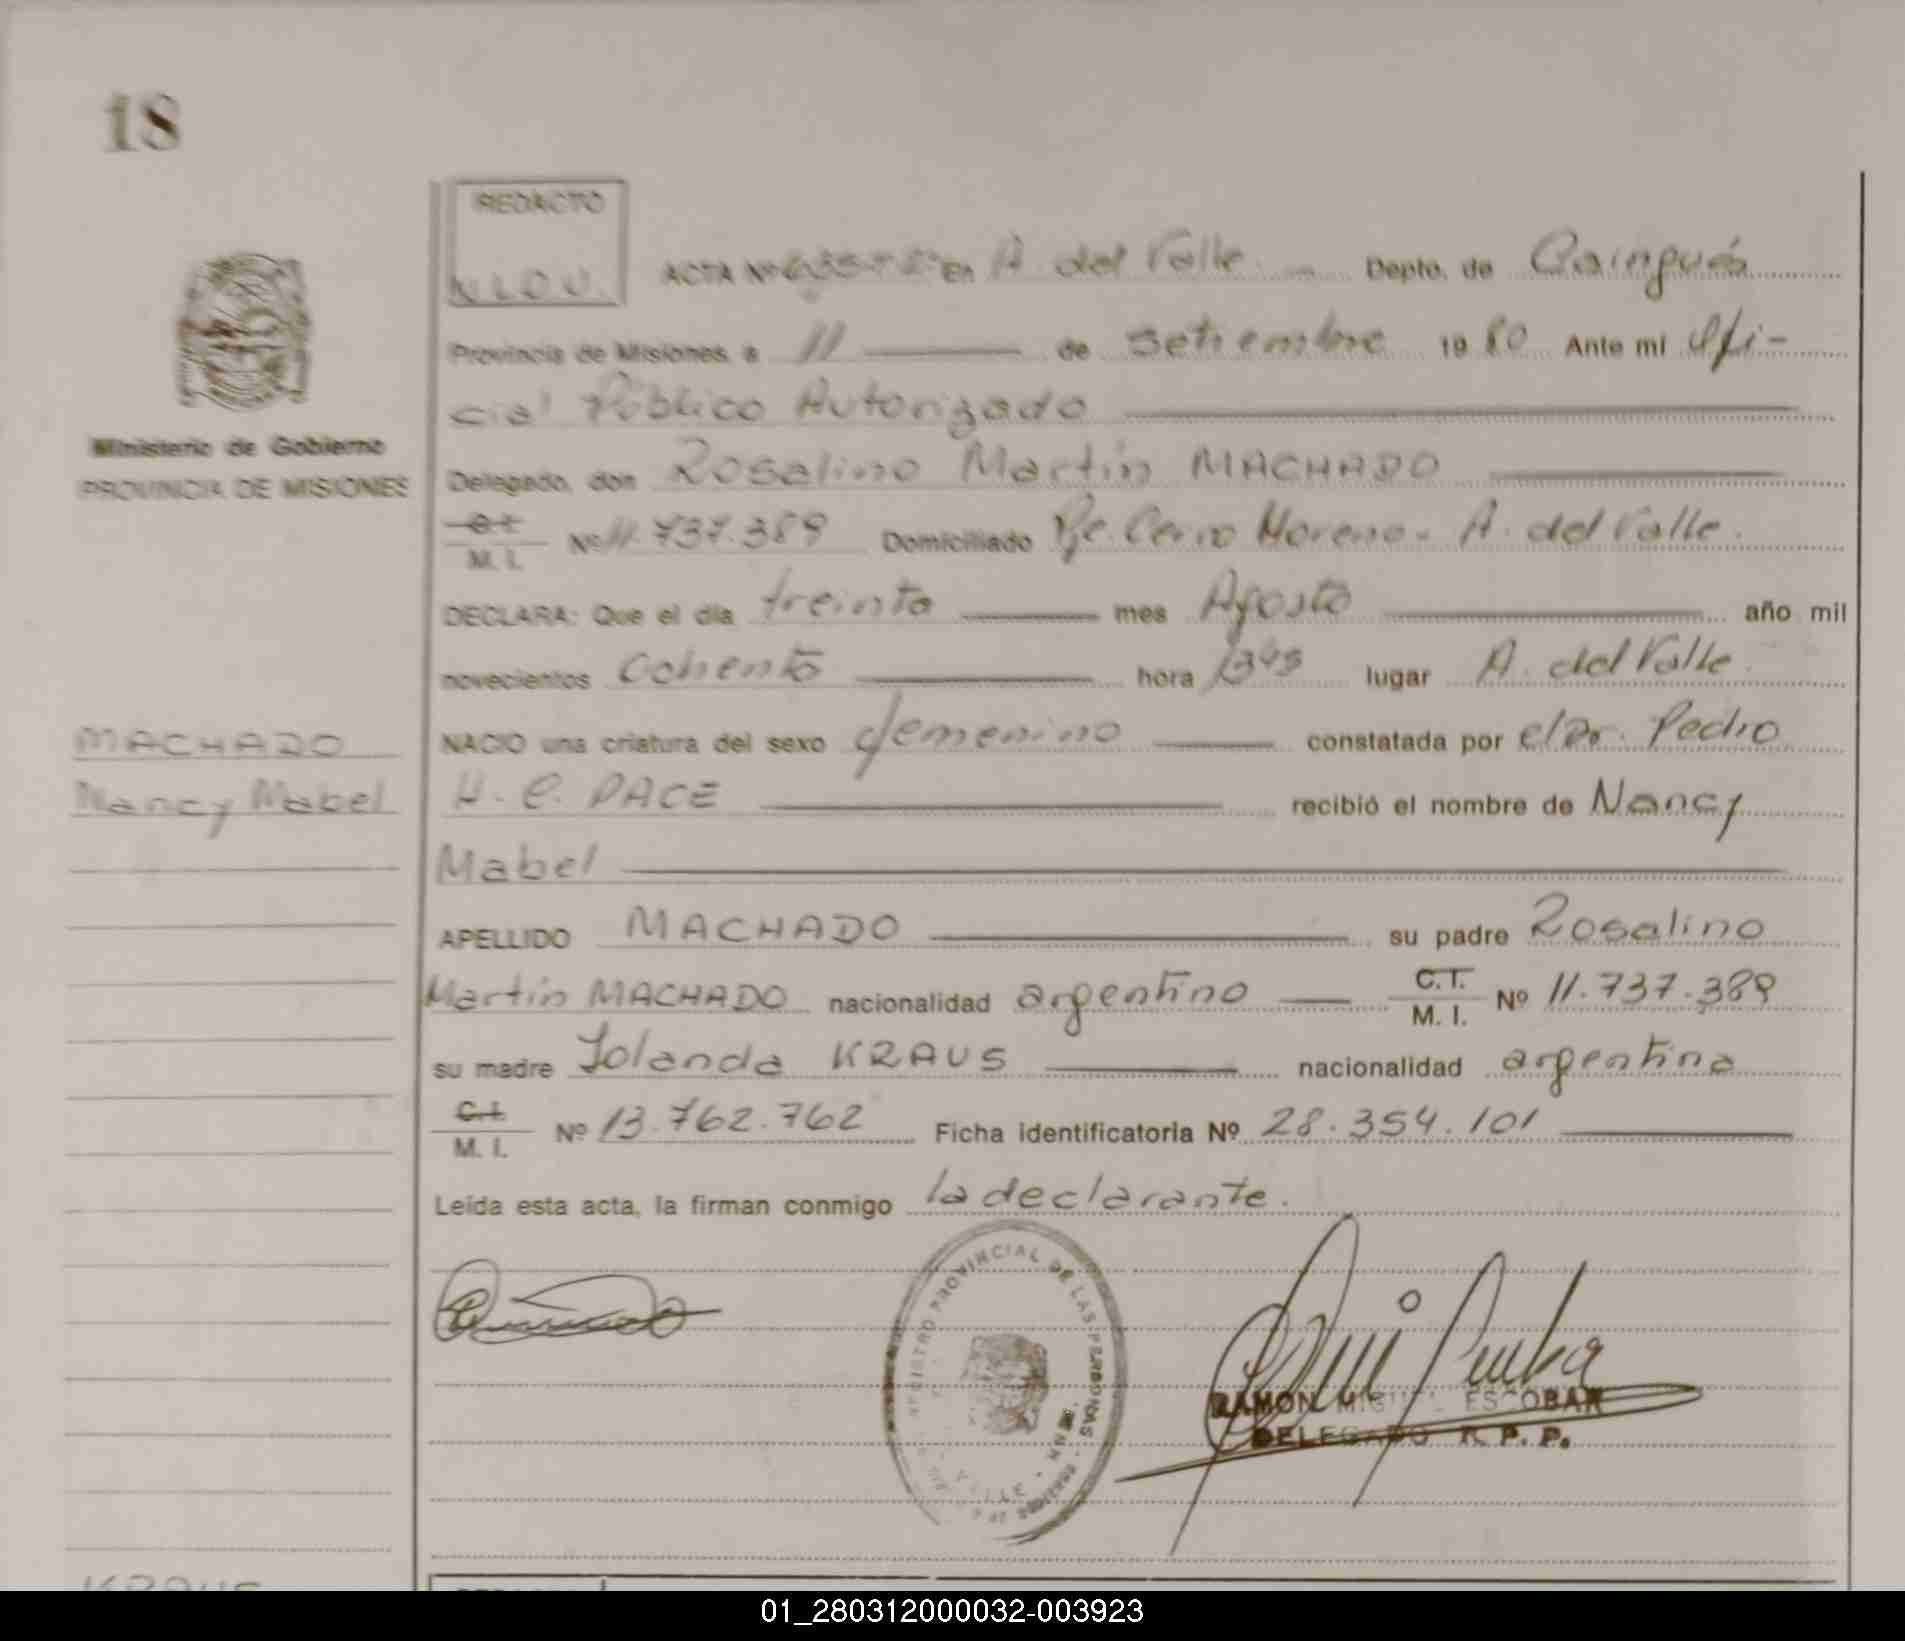 18
REDACTO
ACTA Nº En A. del Valle Depto. de Cainguás
Provincia de Misiones, a 11 de Setiembre 1980 Ante mí Ofi-
cial Público Autorizado
Ministerio de Gobierno
PROVINCIA DE MISIONES
Delegado, don Rosalino Martín MACHADO
C.I. M. I. Nº 11.737.389 Domiciliado Pje. Cerro Moreno - A. del Valle.
DECLARA: Que el día treinta mes Agosto año mil
novecientos Ochenta hora 1345 lugar A. del Valle.
MACHADO
Nancy Mabel
NACIO una criatura del sexo femenino constatada por el Dr. Pedro
H. C. PACE recibió el nombre de Nancy
Mabel
APELLIDO MACHADO su padre Rosalino
Martín MACHADO nacionalidad argentino C.T. M. I. Nº 11.737.389
su madre Iolanda KRAUS nacionalidad argentina
C.I. M. I. Nº 13.762.762 Ficha identificatoria Nº 28.354.101
Leída esta acta, la firman conmigo la declarante.
REGISTRO PROVINCIAL DE LAS PERSONAS
RAMON MIGUEL ESCOBAR
DELEGADO R. P. P.
KRAUS
01_280312000032-003923